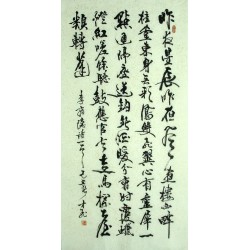 昨夜星辰昨夜風畫樓西畔
桂堂東身無彩鳳雙飛翼心有靈犀一
點通隔座送鉤春酒暖分曹射覆蠟
燈紅嗟余聽鼓應官去走馬蘭臺
類轉蓬
李商隱詩一首